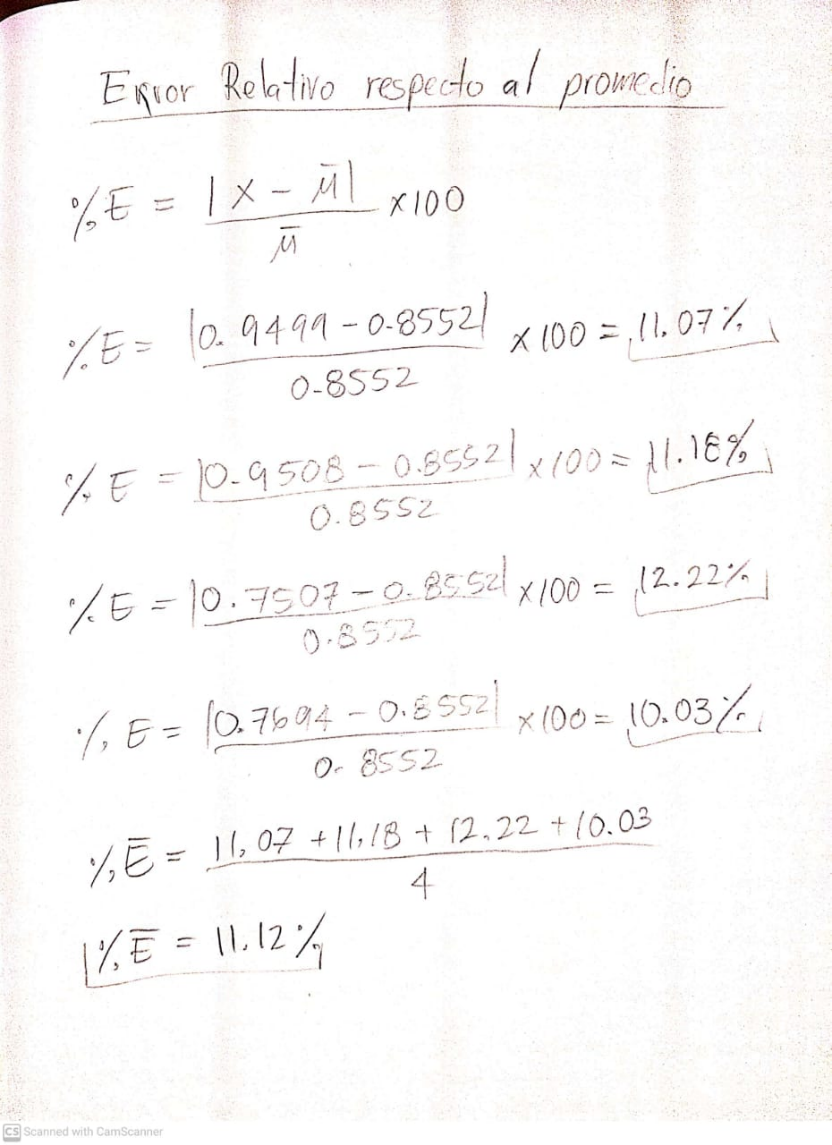 Error Relativo respecto al promedio
%E = |x - μ̄| / μ̄ x100
%E = |0.9499 - 0.8552| / 0.8552 x100 = 11.07%
%E = |0.9508 - 0.8552| / 0.8552 x100 = 11.18%
%E = |0.7507 - 0.8552| / 0.8552 x100 = 12.22%
%E = |0.7694 - 0.8552| / 0.8552 x100 = 10.03%
%Ē = 11,07 + 11,18 + 12,22 + 10.03 / 4
%Ē = 11,12%
CS Scanned with CamScanner